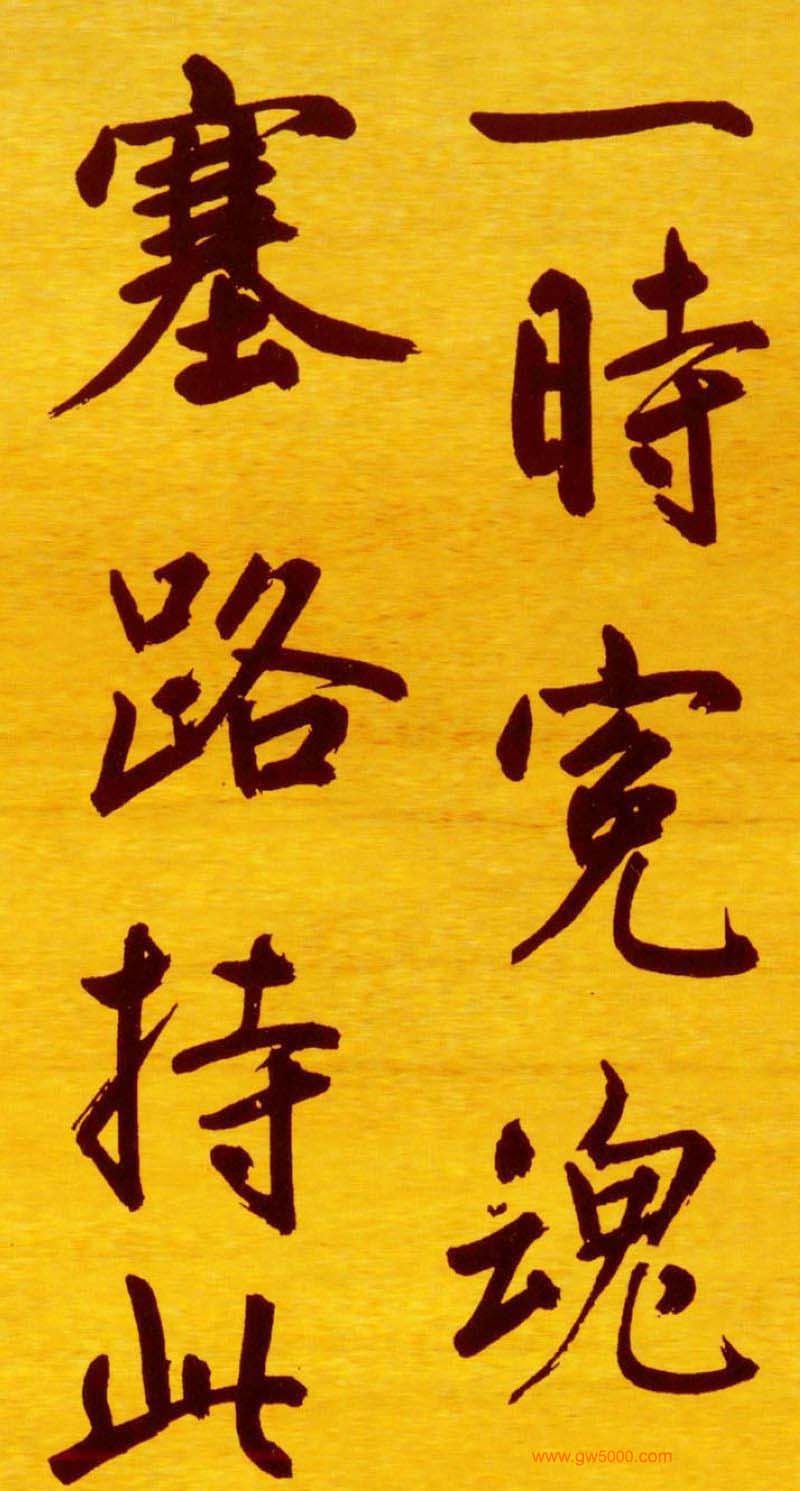 一時寃魂
塞路持此
www.gw5000.com